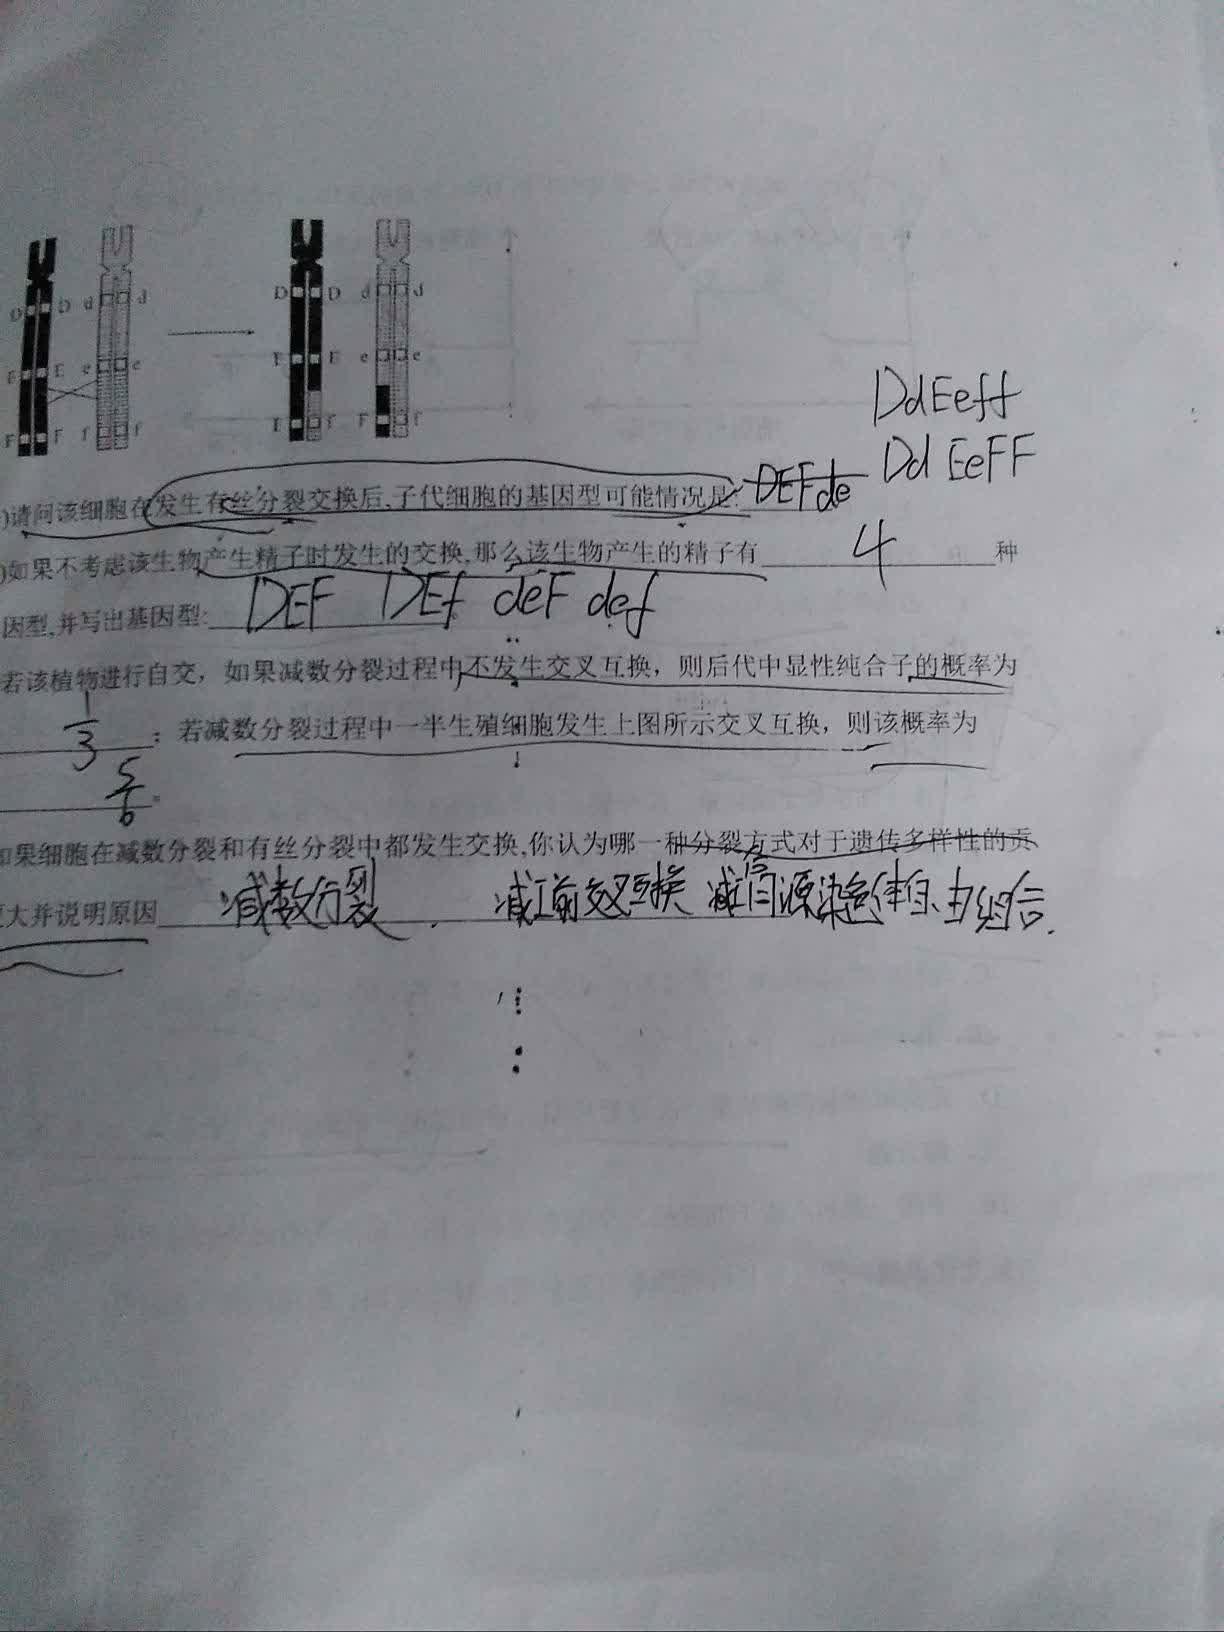 D D d d D D d d
E E e e E E e e
F F f f F f F f
DdEeff
)请问该细胞在发生有丝分裂交换后,子代细胞的基因型可能情况是: DEFde DdEeFF
)如果不考虑该生物产生精子时发生的交换,那么该生物产生的精子有 4 种
因型,并写出基因型: DEF DEf deF def
若该植物进行自交，如果减数分裂过程中不发生交叉互换，则后代中显性纯合子的概率为
1/3 ；若减数分裂过程中一半生殖细胞发生上图所示交叉互换，则该概率为
5/6 。
如果细胞在减数分裂和有丝分裂中都发生交换,你认为哪一种分裂方式对于遗传多样性的贡
更大并说明原因 减数分裂. 减I前交叉互换 减I后同源染色体自由组合.